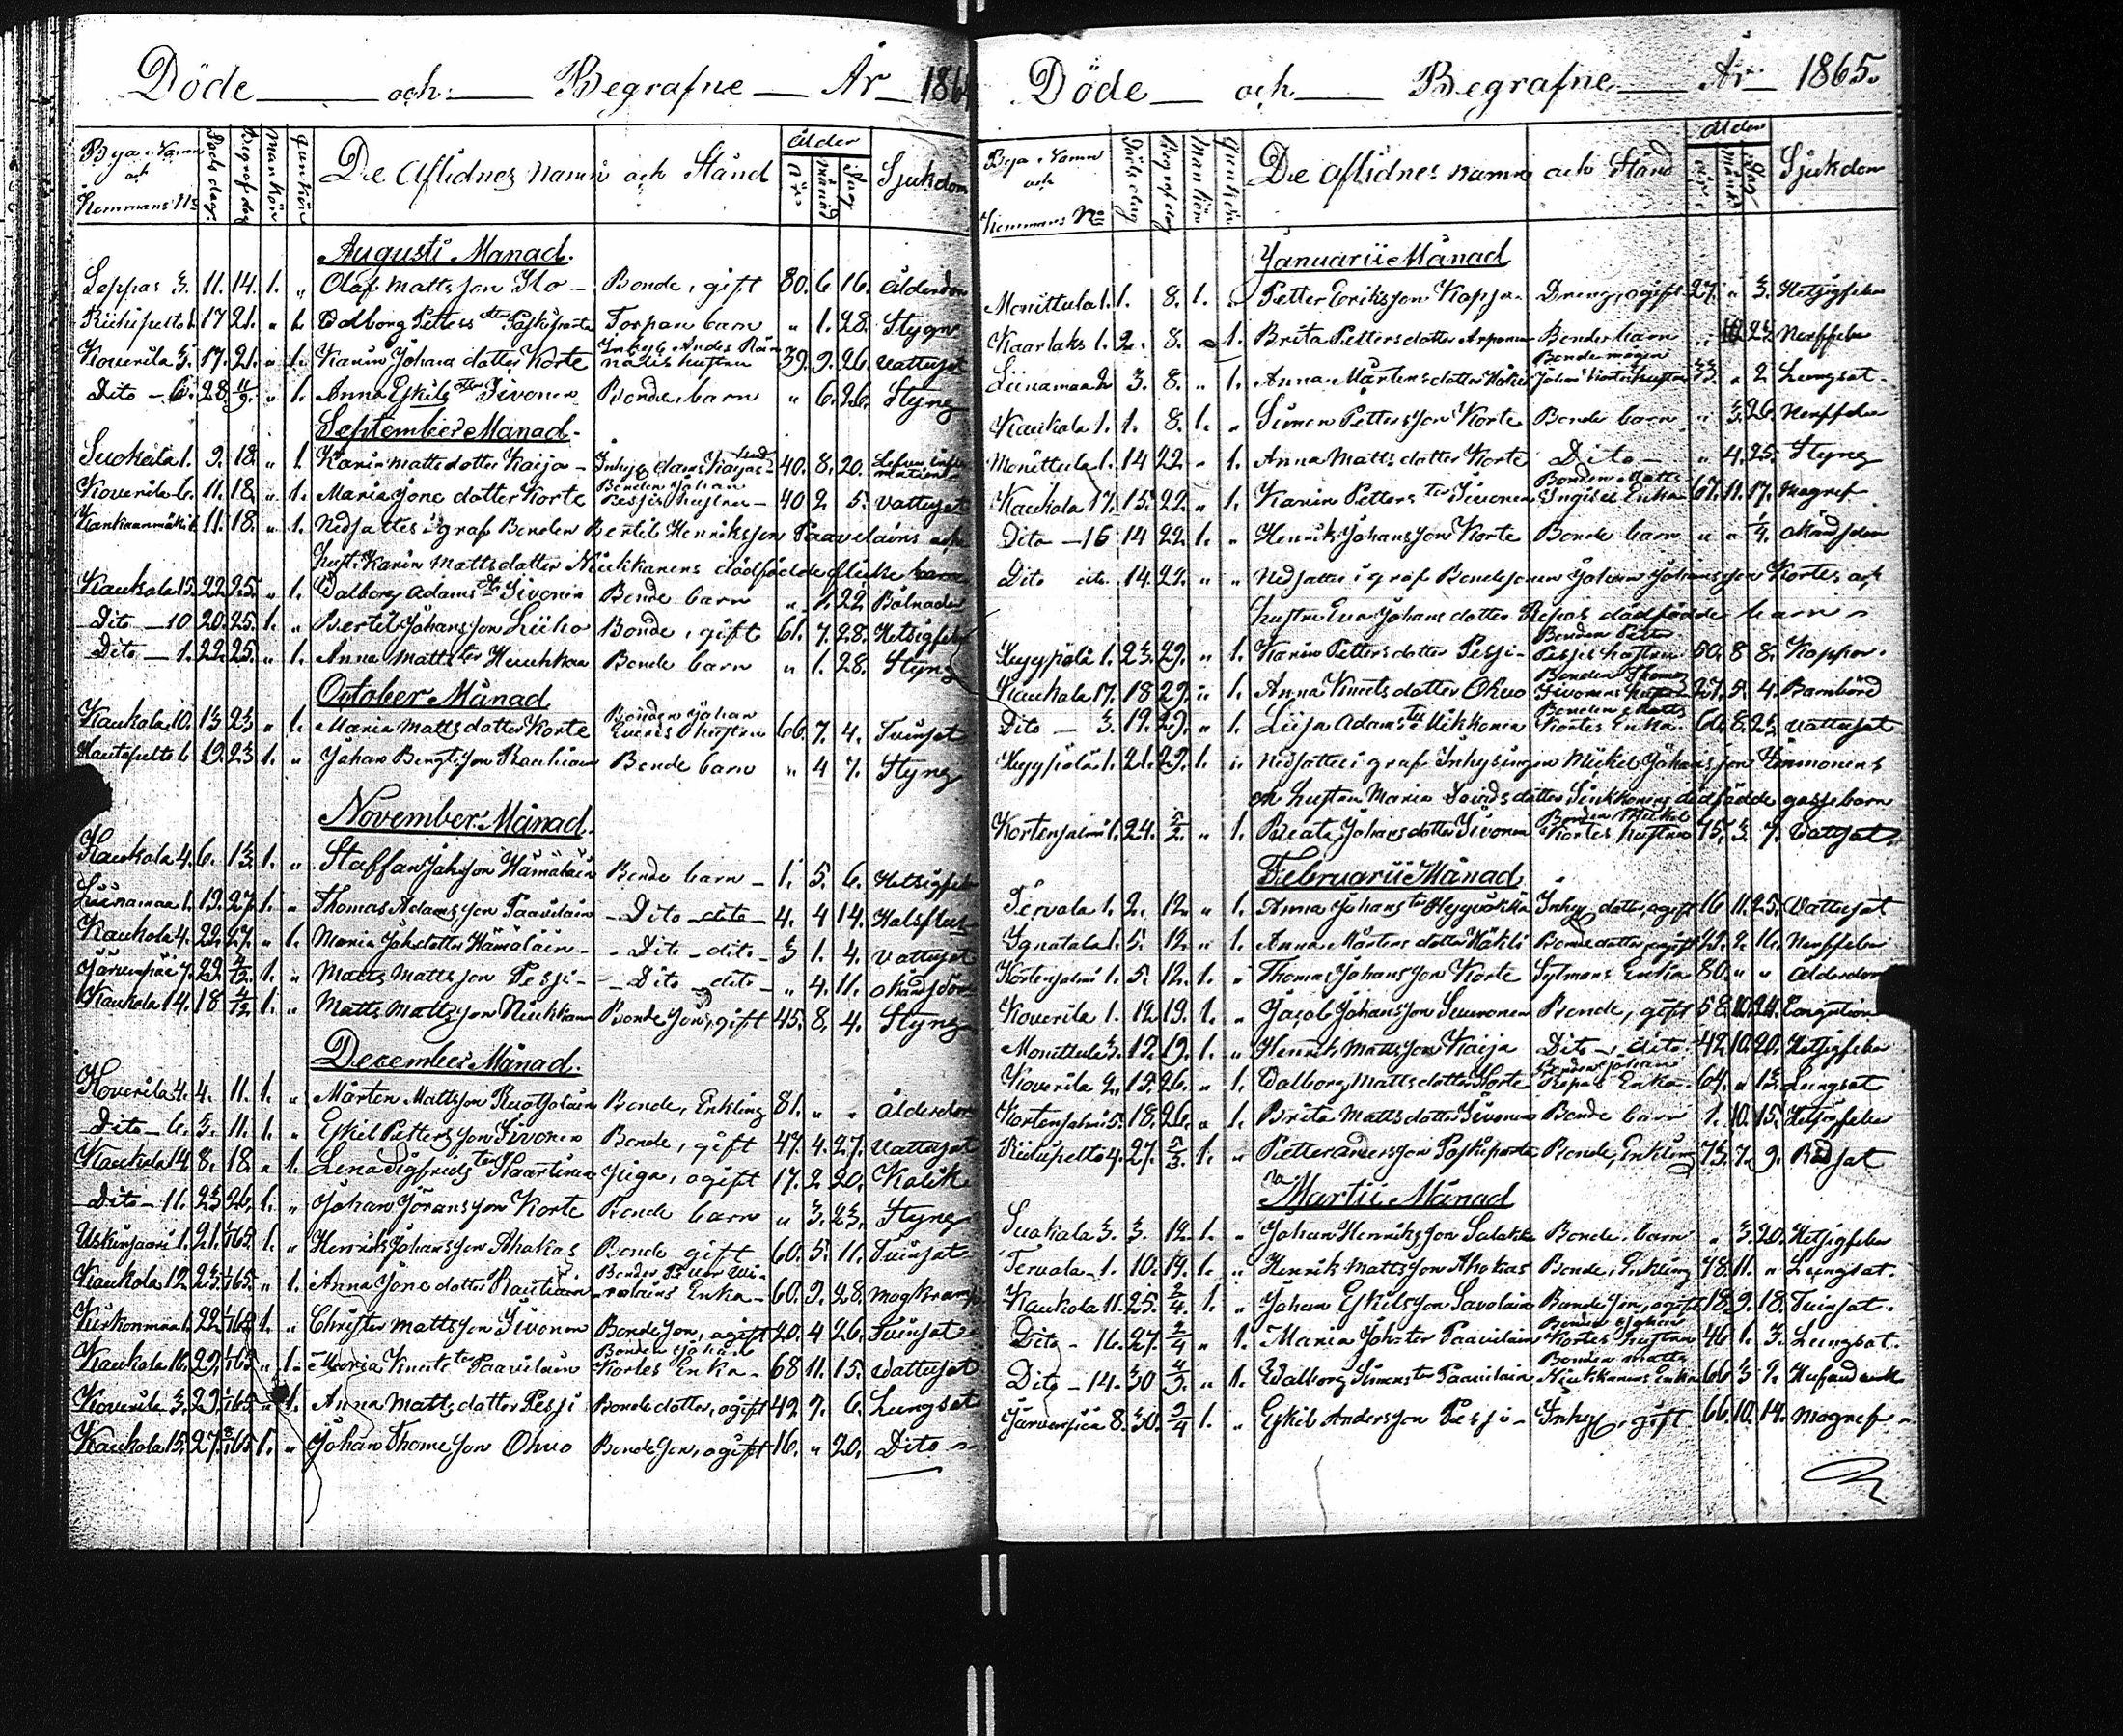 Döde och Begrafne År 186
Bya Namn och Hemmans No Döds dag. Begraf. dag Mankön Qunkön De Aflidnes namn och Stånd Ålder År Månad Dag Sjukdom
Augusti Månad.
Seppas 3. 11. 14. 1. „ Olof Mattsson Ilo Bonde, gift 80. 6. 16. Ålderdom
17 21. „ 1. Walborg Petters dtr Torpare barn „ 1. 28. Styng
Koverila 3. 17. 21. „ 1. Karin Johans dotter Korte hustru 39. 9. 26. Vattusot
Dito 6. 28. 4/9. „ 1. Anna Eskils dtr Sivonen Bonde barn „ 6. 26. Styng
September Månad.
Suokala 1. 9. 18. „ 1. Karin Mattsdotter Kaija 40. 8. 20.
Koverila 6. 11. 18. „ 1. Maria Jöns dotter Korte Bonden Johan Pessis hustru 40 2 5. Vattusot
Kankaanmäki 11. 18. „ 1. Nedsattes i graf Bonden Bertil Henriksson Paavilains och
hust. Karin Mattsdotter Niukkanens dödfödde flicke barn
Kaukola 15. 22. 25. „ 1. Walborg Adams dtr Sivonen Bonde barn „ 1. 22 Bölnader
Dito 10 20. 25. 1. „ Bertil Johansson Liiho Bonde, gift 61. 7. 28. Hetsigfeber
Dito 1. 22. 25. „ 1. Anna Matts ter Bonde barn „ 1. 28. Styng
October Månad
Kaukola 10. 13 23 „ 1. Maria Mattsdotter Korte Bonden Johan hustru 66. 7. 4. Tvinsot
Hautapelto 6. 19. 23. 1. „ Johan Bengtsson Rautiain Bonde barn „ 4 7. Styng
November Månad.
Kaukola 4. 6. 13. 1. „ Staffan Johsson Hämäläin Bonde barn 1. 5. 6. Hetsigfeber
Liinamaa 1. 19. 27. 1. „ Thomas Adamsson Paavilain Dito dito 4. 4 14. Halsfluss
Kaukola 4. 22. 27. „ 1. Maria Johsdotter Hämäläin Dito dito 3 1. 4. Vattusot
Järvenpää 7. 29. 4/12. 1. „ Matts Mattsson Pessi Dito dito „ 4. 11. okänd sjd
Kaukola 14. 18 4/12 1. „ Matts Mattsson Niukkanen Bonde son, gift 45. 8. 4. Styng
December Månad.
Koverila 4. 4. 11. 1. „ Mårten Mattsson Ruotsalain Bonde, Enkling 81. „ „ Ålderdom
Dito 6. 5. 11. 1. „ Eskil Pettersson Sivonen Bonde, gift 47. 4. 27. Vattusot
Kaukola 14. 8. 18. „ 1. Lena Sigfrids ter Kaartinen Piga, ogift 17. 2 20. Kolik
Dito 11. 23 26. 1. „ Johan Göransson Korte Bonde barn „ 3. 23. Styng
Uskinjaari 1. 21. 1. „ Henrik Johansson Ahokas Bonde gift 60. 5. 11. Tvinsot
Kaukola 12. 23. „ 1. Anna Jöns dotter Rautiain Bonden Petter Enka 60. 9. 28. Magkramp
Kirkonmaa 1. 22. 1. „ Christer Mattsson Sivonen Bonde son, ogift 20. 4 26. Tvinsot
Kaukola 16. 29. „ 1. Maria Knuts ter Paavilain Bonden Johan Kortes Enka 68 11. 15. Vattusot
Koverila 3. 29. „ 1. Anna Matts dotter Pessi Bonde dotter, ogift 42 7. 6. Lungsot
Kaukola 15. 27. 1. „ Johan Thomesson Ohvo Bonde son, ogift 16. „ 20. Dito
Döde och Begrafne År 1865.
Bya Namn och Hemmans No Döds dag Begraf. dag Mankön Qvinkön De Aflidnes namn och Stånd Ålder År Månad Dag Sjukdom
Januarii Månad
Monittula 1. 1. 8. 1. „ Petter Eriksson Dreng, ogift 27. „ 3. Hetsigfeber
Kaarlaks 1. 2. 8. „ 1. Brita Pettersdotter Arponen Bonde barn „ 23. Nerffeber
Liinamaa 2. 3. 8. „ 1. Anna Mårtens dotter Häkli Bondemågen Johan Kortes hustru 33. „ 2 Lungsot
Kaukola 1. 1. 8. 1. „ Simon Pettersson Korte Bonde barn „ 3. 26. Nerffeber
Monittula 1. 14 22. „ 1. Anna Matts dotter Korte Dito „ 4. 25. Styng
Kaukola 17. 15. 22. „ 1. Karin Petters ter Sivonen Bonden Matts Enka 67. 11. 17. Magref
Dito 16 14 22 1. „ Henrik Johansson Korte Bonde barn „ „
Dito dito 14. 22. „ „ Nedsattes i graf Bondesonen Johan Johansson Kortes och
hustru Eva Johans dotter Repos dödfödde barn
Hyypölä 1. 23. 29. „ 1. Karin Pettersdotter Pessi Bonden Petter Pessis hustru 50. 8 8. Koppor.
Kaukola 17. 18 29. „ 1. Anna Knuts dotter Ohvo Bonden Thomas Sivonens hustru 27. 5. 4. Barnbörd
Dito 3. 19. 29. „ 1. Liisa Adams tr Mikkonen Bonden Matts Kortes Enka 60. 8. 23 Vattusot
Hyypölä 1. 21. 29. 1. „ Nedsattes i graf Inhysingen Mickel Johansson Himmonens
och hustru Maria Davids dotter Sinkkonens dödfödde gossebarn
Kortensalmi 1. 24. 5/2. „ 1. Beata Johans dotter Sivonen Bonden Mickel Kortes hustru 75. 3. 7. Vattusot
Februarii Månad
Tervola 1. 2. 12. „ 1. Anna Johans tr Inhys dotter, ogift 16 11. 25. Vattusot
Ignatala 1. 5. 12. „ 1. Anna Mårtens dotter Häkli Bonde dotter, ogift Nerffeber
Kortensalmi 1. 5. 12. 1. „ Thomas Johansson Korte 80. „ „ Ålderdom
Koverila 1. 12 19. 1. „ Jacob Johansson Suuronen Bonde, gift 58. 10. 24.
Monittula 3. 12. 19. 1. „ Henrik Mattsson Kaija Dito dito 42. 10. 20. Hetsigfeber
Koverila 2. 15. 26. „ 1. Walborg Mattsdotter Korte Bonden Johan Repos Enka 64. „ 13. Lungsot
Kortensalmi 5. 18. 26. „ 1. Brita Mattsdotter Sivonen Bonde barn 1. 10. 15. Hetsigfeber
4. 27. 5/3. 1. „ Petter Andersson Bonde, Enkling 73. 7. 9. Rödsot
Martii Månad
Suokala 3. 3. 12. 1. „ Johan Henriksson Bonde barn „ 3. 20. Hetsigfeber
Tervola 1. 10. 19. 1. „ Henrik Mattsson Ahokas Bonde, Enkling 48. 11. „ Lungsot.
Kaukola 11. 25. 2/4. 1. „ Johan Eskilsson Savolain Bonde son, ogift 18. 9. 18. Tvinsot.
Dito 16. 27. 2/4 „ 1. Maria Johs ter Paavilain Bonden Johan Kortes hustru 46 1. 3. Lungsot.
Dito 14. 30 „ 1. Walborg Simons tr Paavilain Bonden Matts Niukkanens Enka 66 3 9.
Järvenpää 8. 30. 2/4 1. „ Eskil Andersson Pessi Inhys, gift 66. 10. 14. Magref